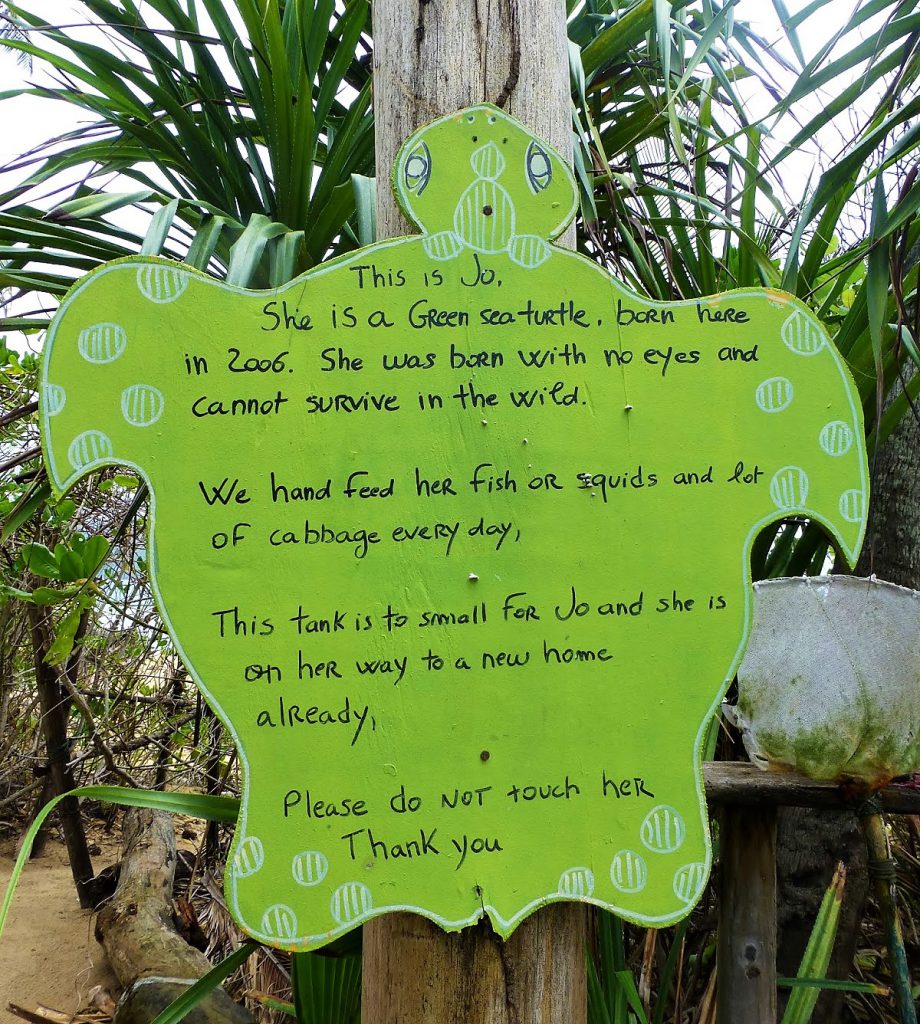 This is Jo,
She is a Green sea turtle, born here
in 2006. She was born with no eyes and
cannot survive in the wild.
We hand feed her fish or squids and lot
of cabbage every day,
This tank is to small for Jo and she is
on her way to a new home
already,
Please do NOT touch her
Thank you